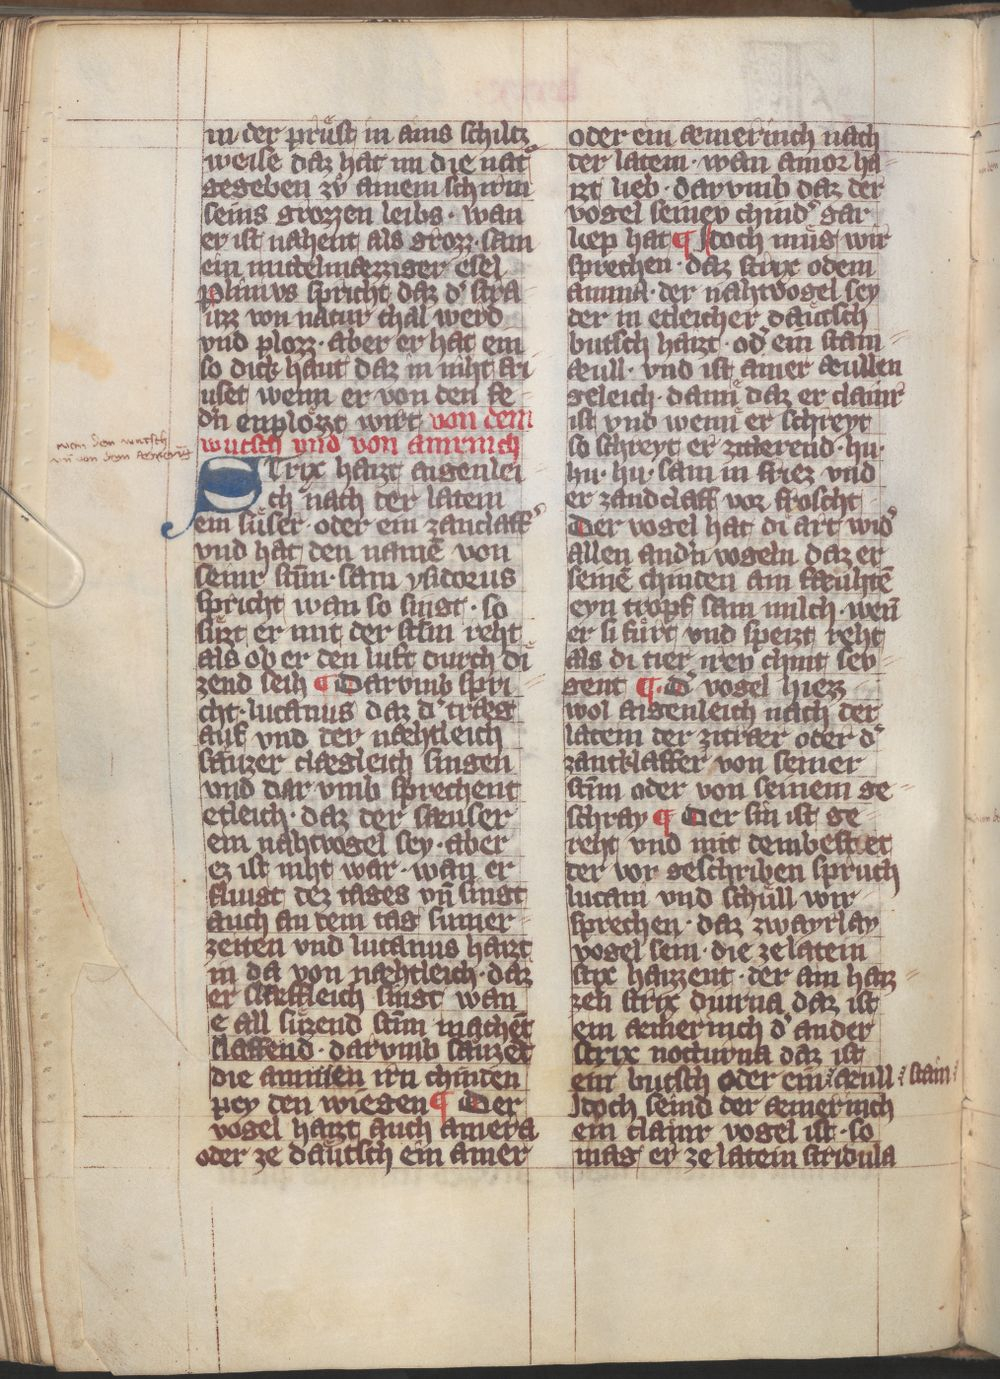 in der průst in ains schiltz
weise daz hat im die nat͛
gegeben zů ainem schirm
seins grozzen leibs · wan
er ist nahent als grozz · sam
ein mittelmæzziger esel
Plinius spricht daz d͛ stra
uzz von natur chal werd
vnd plozz · aber er hat ein
so dick haut daz in niht fri
uset wenn er von den fe
dn̄ enplözzt wirt von dem
wutsch vnd von amrinch
von dem wutsch
vn̄ von dem æmering
STrix haizt aigenlei
ch nach der latein
ein süser · oder ein zanclaff͛
vnd hat den namē von
seinr stim̄ · sam ysidorus
spricht wan so singt · so
sůzt er mit der stim̄ reht
als ob er den luft durch di
zend seih ¶ Darvmb spri
cht · lucanus daz d͛ træg
auf vnd der næhtleich
sauzer clægleich singen
vnd dar vmb sprechent
etleich · daz der sæuser
ein nahtvogel sey · aber
ez ist niht war · wan er
fliugt dez tages vn̄ singt
auch an dem tag sumer
zeiten vnd lucanus haizt
in da von næhtleich · daz
er slæffleich singt wan
e all süzend stim̄ machēt
slaffend · darvmb sauzēt
die ammen irn chinden
pey den wiegen ¶ Der
vogel haizt auch amera
oder ze däutsch ein amer
oder ein æmerinch nach
der latein · wan amor ha
izt lieb · darvmb daz der
vogel seinev chind͛ gar
liep hat ¶ Idoch müg wir
sprechen · daz strix oder
amma · der nahtvogel sey
der in etleicher däutsch
butsch haizt · od͛ ein stain
æull · vnd ist ainer æullen
geleich · dann daz er clainr
ist vnd wenn er schreyt
so schreyt er zitterend · hu ·
hu · hu · sam in friez vnd
er zandclaff vor froscht
Der vogel hat di art wid͛
allen andn̄ vogeln daz er
seinē chinden am fæuhtē
eyn tropf sam milch · wen̄
er si fürt vnd speizt reht
als di tier irev chint sev
gent ¶ · D͛ vogel hiezz
wol aigenleich nach der
latein der zitrær oder d͛
zantklaffer von seiner
stim̄ oder von seinem ge
schray ¶ Der sin ist ge
reht vnd mit dem bestet
der vor geschriben spruch
lucani vnd schüll wir
sprechen · daz zwayrlay
vogel sein · die ze latein
stix haizzent · der ain haiz
zen strix diurna daz ist
ein æmerinch d͛ ander
strix nocturna daz ist
ein butsch oder ein æull stain
Idoch seind der æmerinch
ein clainr vogel ist · so
mag er ze latein stridula